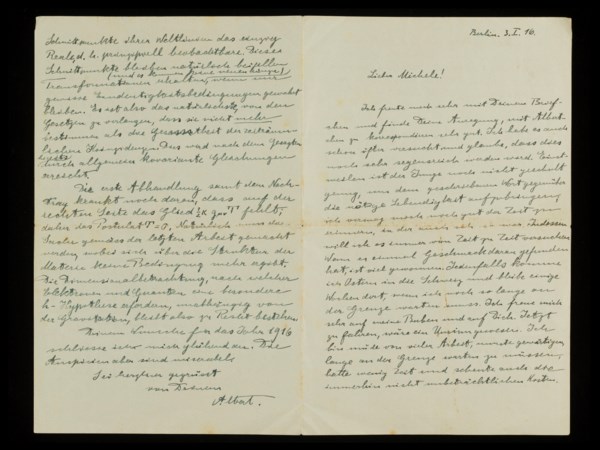 Berlin. 3. I. 16.
Lieber Michele!
Ich freute mich sehr mit Deinem Brief-
chen und finde Deine Anregung, mit Albert
zu korrespondieren sehr gut. Ich habe es auch
schon öfter versucht und glaube, dass dies
noch sehr werden wird. Einst-
weilen ist der Junge noch nicht geschult
genug, um dem geschriebenen Wort gegenüber
die nötige Lebendigkeit aufzubringen;
ich vermag mich noch gut der Zeit zu
erinnern, in der auch ich so war. Indessen
will ich es immer von Zeit zu Zeit versuchen.
Wenn er einmal Geschmack daran gefunden
hat, ist viel gewonnen. Jedenfalls komme
ich Ostern in die Schweiz und bleibe einige
Wochen dort, wenn ich noch so lange an
der Grenze warten muss. Ich freue mich
sehr auf meine Buben und auf Dich. Jetzt
zu fahren, wäre ein Unsinn gewesen. Ich
bin müde von vieler Arbeit, musste gewärtigen,
lange an der Grenze warten zu müssen,
hatte wenig Zeit und scheute auch die
immerhin nicht unbeträchtlichen Kosten.
Schnittpunkte ihrer Weltlinien das einzig
Reale, d. h. prinzipiell beobachtbare. Diese
Schnittpunkte bleiben natürlich bei allen
(und es kommen keine neuen hinzu)
Transformationen erhalten, wenn nur
gewisse Eindeutigkeitsbedingungen gewahrt
bleiben. Es ist also das natürlichste, von den
Gesetzen zu verlangen, dass sie nicht mehr
bestimmen als die Gesamtheit der zeiträum-
lichen Koinzidenzen. Dies wird nach dem Gesagten
bereits
durch allgemein kovariante Gleichungen
erreicht.
Die erste Abhandlung samt dem Nach-
trag krankt noch daran, dass auf der
rechten Seite das Glied ½ κ gμν T fehlt;
daher das Postulat T = 0. Natürlich muss die
Sache gemäss der letzten Arbeit gemacht
werden, wobei sich über die Struktur der
Materie keine Bedingung mehr ergibt.
Die Dimensionalbetrachtung, nach welcher
Elektronen und Quanten eine besondere
h-Hypothese erfordern, unabhängig von
der Gravitation, bleibt also zu Recht bestehen.
Deinem Wunsche für das Jahr 1916
schliesse ich mich glühend an. Die
Auspizien aber sind miserabel.
Sei herzlich gegrüsst
von Deinem
Albert.